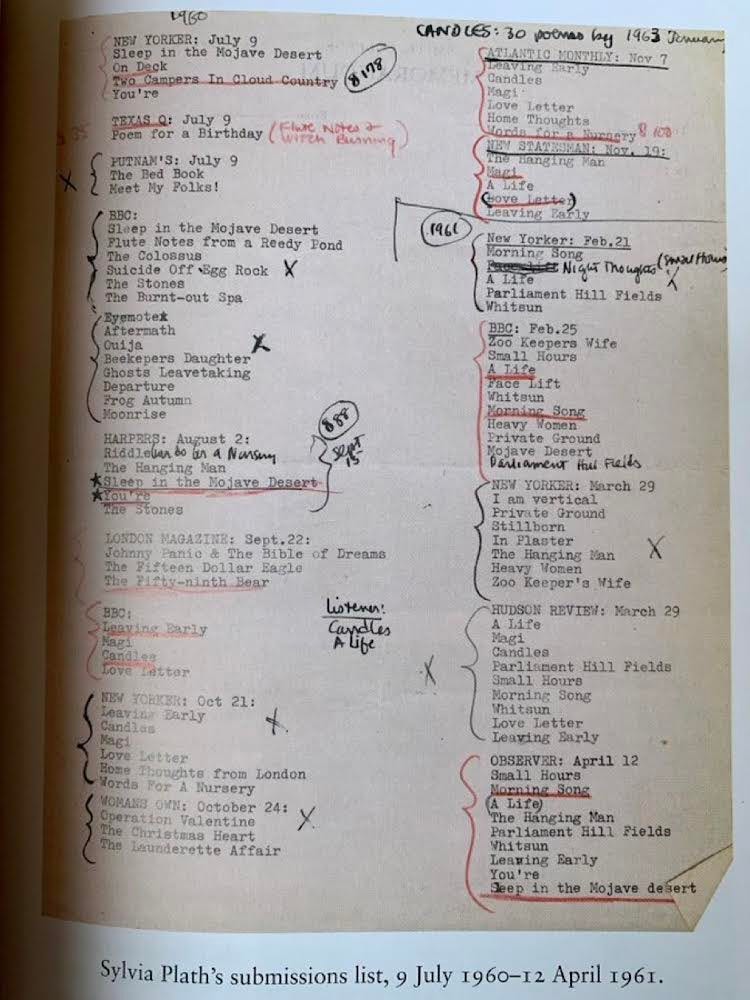 1960
NEW YORKER: July 9
Sleep in the Mojave Desert
On Deck
Two Campers In Cloud Country
You're
$178
TEXAS Q: July 9
Poem for a Birthday (Flute Notes & Witch Burning)
35
PUTNAM'S: July 9
X
The Bed Book
Meet My Folks!
BBC:
Sleep in the Mojave Desert
Flute Notes from a Reedy Pond
The Colossus
Suicide Off Egg Rock X
The Stones
The Burnt-out Spa
Eyemote
Aftermath
Ouija X
Beekepers Daughter
Ghosts Leavetaking
Departure
Frog Autumn
Moonrise
HARPERS: August 2:
$88
Sept 15
The Hanging Man
*Sleep in the Mojave Desert
*You're
The Stones
LONDON MAGAZINE: Sept.22:
Johnny Panic & The Bible of Dreams
The Fifteen Dollar Eagle
The Fifty-ninth Bear
BBC:
Leaving Early
Magi
Candles
Love Letter
Listener:
Candles
A Life
NEW YORKER: Oct 21:
Leaving Early X
Candles
Magi
Love Letter
Home Thoughts from London
Words For A Nursery
WOMANS OWN: October 24:
Operation Valentine X
The Christmas Heart
The Launderette Affair
CANDLES: 30 poems by 1963 January
ATLANTIC MONTHLY: Nov 7
Leaving Early
Candles
Magi
Love Letter
Home Thoughts
Words for a Nursery $100
NEW STATESMAN: Nov. 19:
The Hanging Man
Magi
A Life
(Love Letter)
Leaving Early
1961
New Yorker: Feb.21
Morning Song
Night Thoughts (Small Hours
A Life X
Parliament Hill Fields
Whitsun
BBC: Feb.25
Zoo Keepers Wife
Small Hours
A Life
Face Lift
Whitsun
Morning Song
Heavy Women
Private Ground
Mojave Desert
Parliament Hill Fields
NEW YORKER: March 29
I am vertical
Private Ground
Stillborn
In Plaster
The Hanging Man X
Heavy Women
Zoo Keeper's Wife
HUDSON REVIEW: March 29
A Life
Magi
Candles
X
Parliament Hill Fields
Small Hours
Morning Song
Whitsun
Love Letter
Leaving Early
OBSERVER: April 12
Small Hours
Morning Song
(A Life)
The Hanging Man
Parliament Hill Fields
Whitsun
Leaving Early
You're
Sleep in the Mojave desert
Sylvia Plath's submissions list, 9 July 1960–12 April 1961.